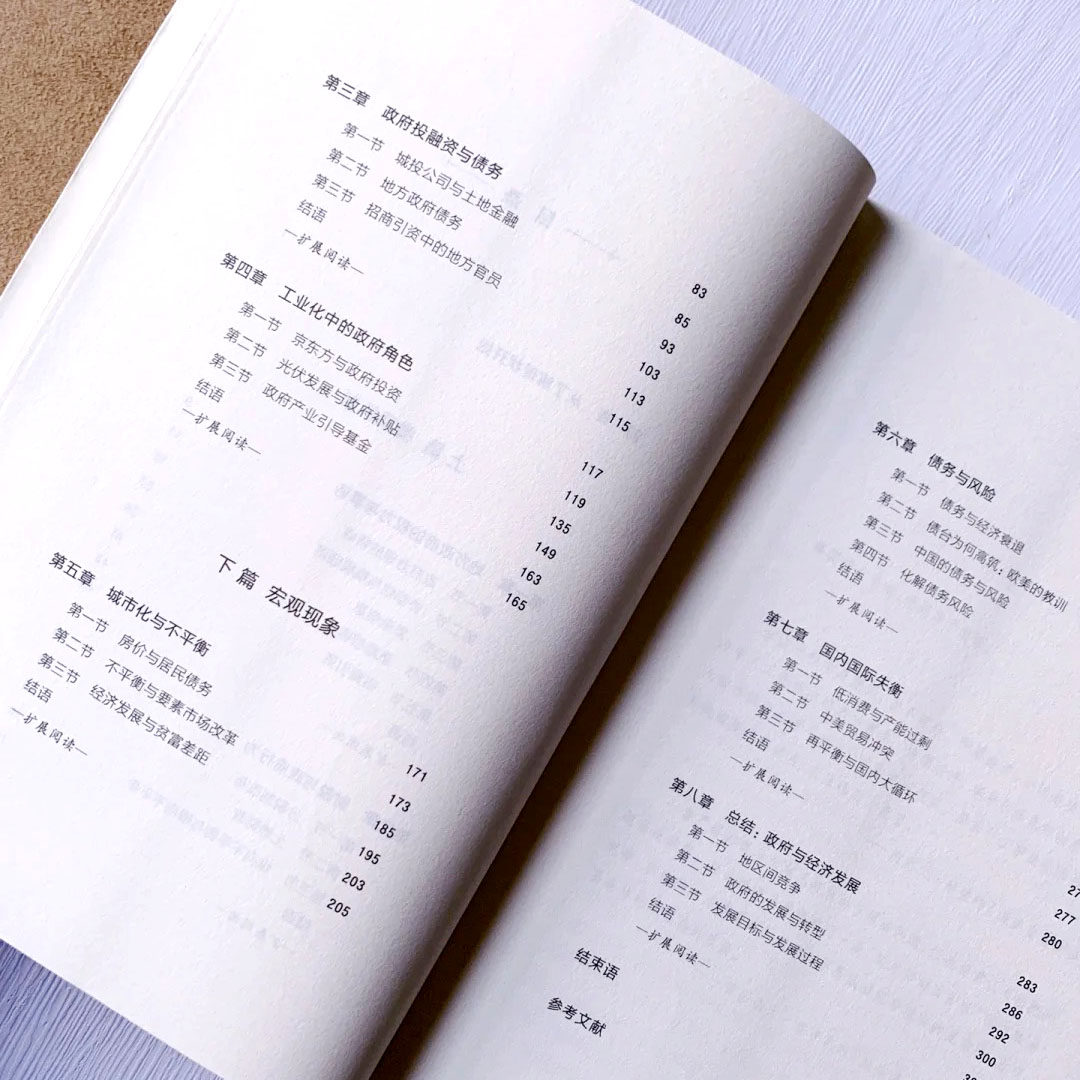 第三章 政府投融资与债务 83
第一节 城投公司与土地金融 85
第二节 地方政府债务 93
第三节 招商引资中的地方官员 103
结语 113
—扩展阅读— 115
第四章 工业化中的政府角色 117
第一节 京东方与政府投资 119
第二节 光伏发展与政府补贴 135
第三节 政府产业引导基金 149
结语 163
—扩展阅读— 165
下篇 宏观现象
第五章 城市化与不平衡 171
第一节 房价与居民债务 173
第二节 不平衡与要素市场改革 185
第三节 经济发展与贫富差距 195
结语 203
—扩展阅读— 205
第六章 债务与风险
第一节 债务与经济衰退
第二节 债台为何高筑：欧美的教训
第三节 中国的债务与风险
第四节 化解债务风险
结语
—扩展阅读—
第七章 国内国际失衡
第一节 低消费与产能过剩
第二节 中美贸易冲突
第三节 再平衡与国内大循环
结语 277
—扩展阅读— 280
第八章 总结：政府与经济发展 283
第一节 地区间竞争 286
第二节 政府的发展与转型 292
第三节 发展目标与发展过程 300
结语
—扩展阅读—
结束语
参考文献